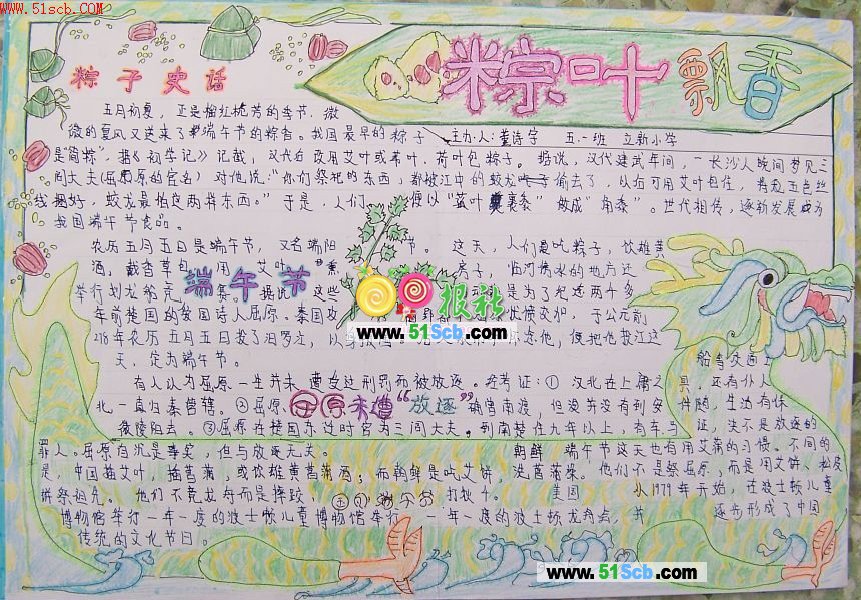 www.51scb.com
粽叶飘香
粽子史话
五月初夏，正是榴红桃芳的季节，微
微的夏风又送来了端午节的粽香。我国最早的粽子
主办人：董诗宇 五.一班 立新小学
是"筒粽"，据《初学记》记载，汉代后改用艾叶或苇叶、荷叶包粽子。据说，汉代建武年间，一长沙人晚间梦见三
闾大夫(屈原的官名)对他说："你们祭祀的东西，都被江中的蛟龙偷去了，以后可用艾叶包住，将五色丝
线捆好，蛟龙最怕这两样东西。"于是，人们便以"菰叶裹黍"做成"角黍"。世代相传，逐渐发展成为
我国端午节食品。
农历五月五日是端午节，又名端阳节。这天，人们是吃粽子，饮雄黄
酒，戴香草包，用艾叶熏房子，临河傍水的地方还
举行划龙船竞赛。据说这些是为了纪念两千多
端午节
年前楚国的爱国诗人屈原。秦国攻忧愤交加，于公元前
报社
www.51Scb.com
278年农历五月五日投了汨罗江，念他，便把他投江这
天，定为端午节。
船舶交通工
有人认为屈原一生并未遭受过刑罚而被放逐。经考证：①汉北在上庸之具，还有仆人
北一直归秦管辖。②屈原确曾南渡，但没并没有到安伴随，生活有保
屈原未遭"放逐"
徽陵阳去。③屈原在楚国东迁时官为三闾大夫。到南楚住九年以上，有车马证，决不是放逐的
罪人。屈原自沉是事实，但与放逐无关。
朝鲜端午节这天也有用艾蒲的习惯。不同的
是，中国插艾叶，插菖蒲，或饮雄黄菖蒲酒；而朝鲜是吃艾饼，洗菖蒲澡。他们不是祭屈原，而是用艾饼、松皮
饼祭祖先。他们不竞龙舟而是摔跤、打秋千。
美国从1979年开始，在波士顿儿童
博物馆举行一年一度的波士顿儿童博物馆举行一年一度的波士顿龙舟点，并逐步形成了中国
传统的文化节日。
www.51Scb.com